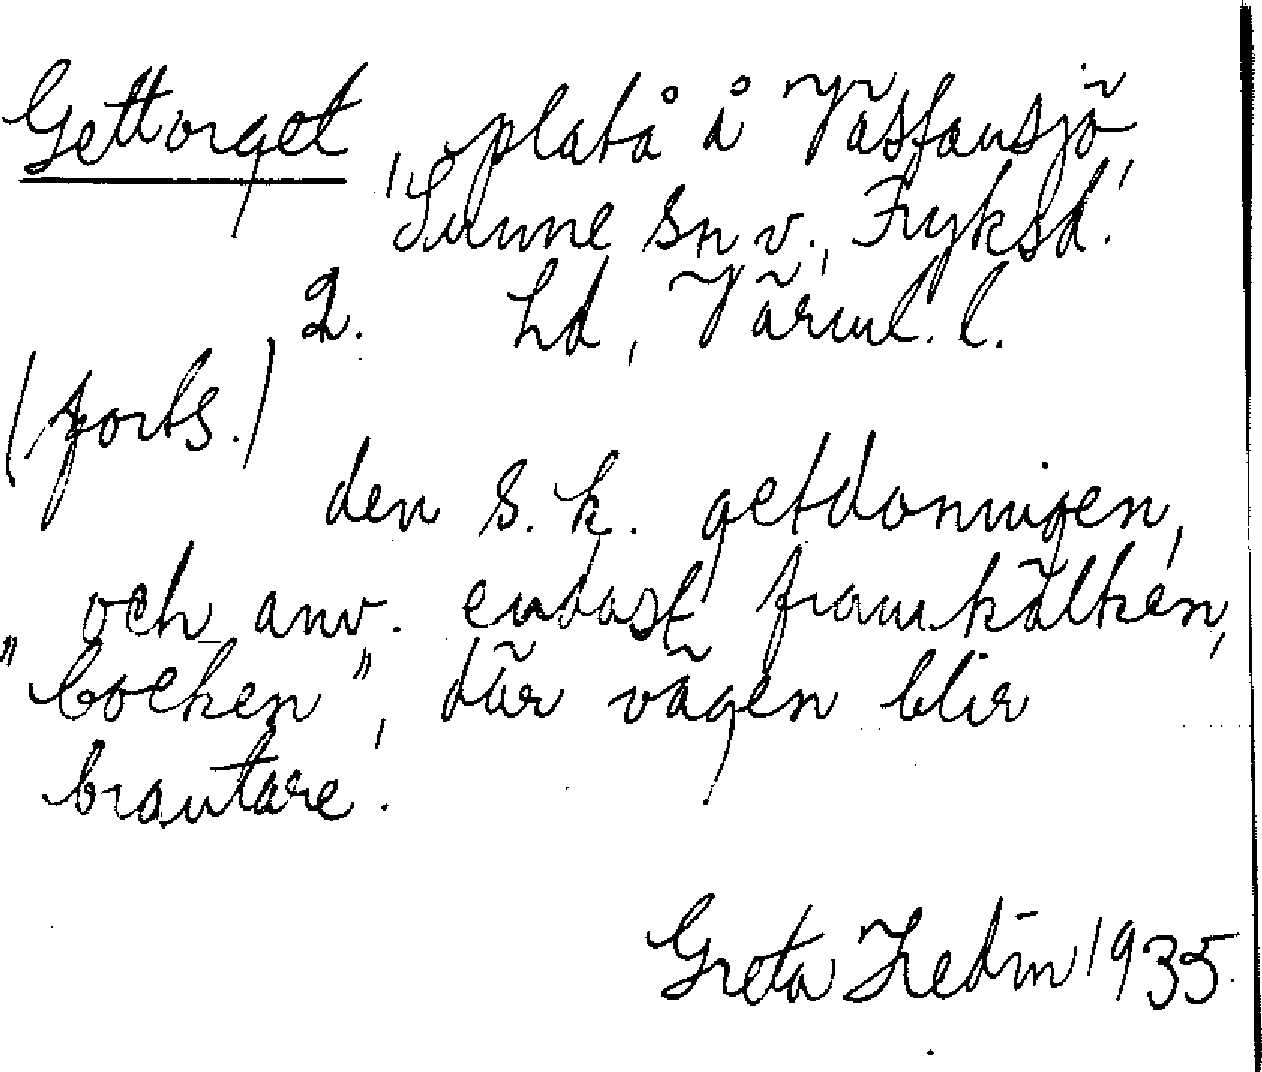 Gettorget, platå å Västansjö,
Sunne sn v., Fryksd.
2. hd, Värml. l.
(forts.)
den s.k. getdonningen,
och anv. endast framkälken,
"bocken", där vägen blir
brantare.
Greta Hedin 1935.